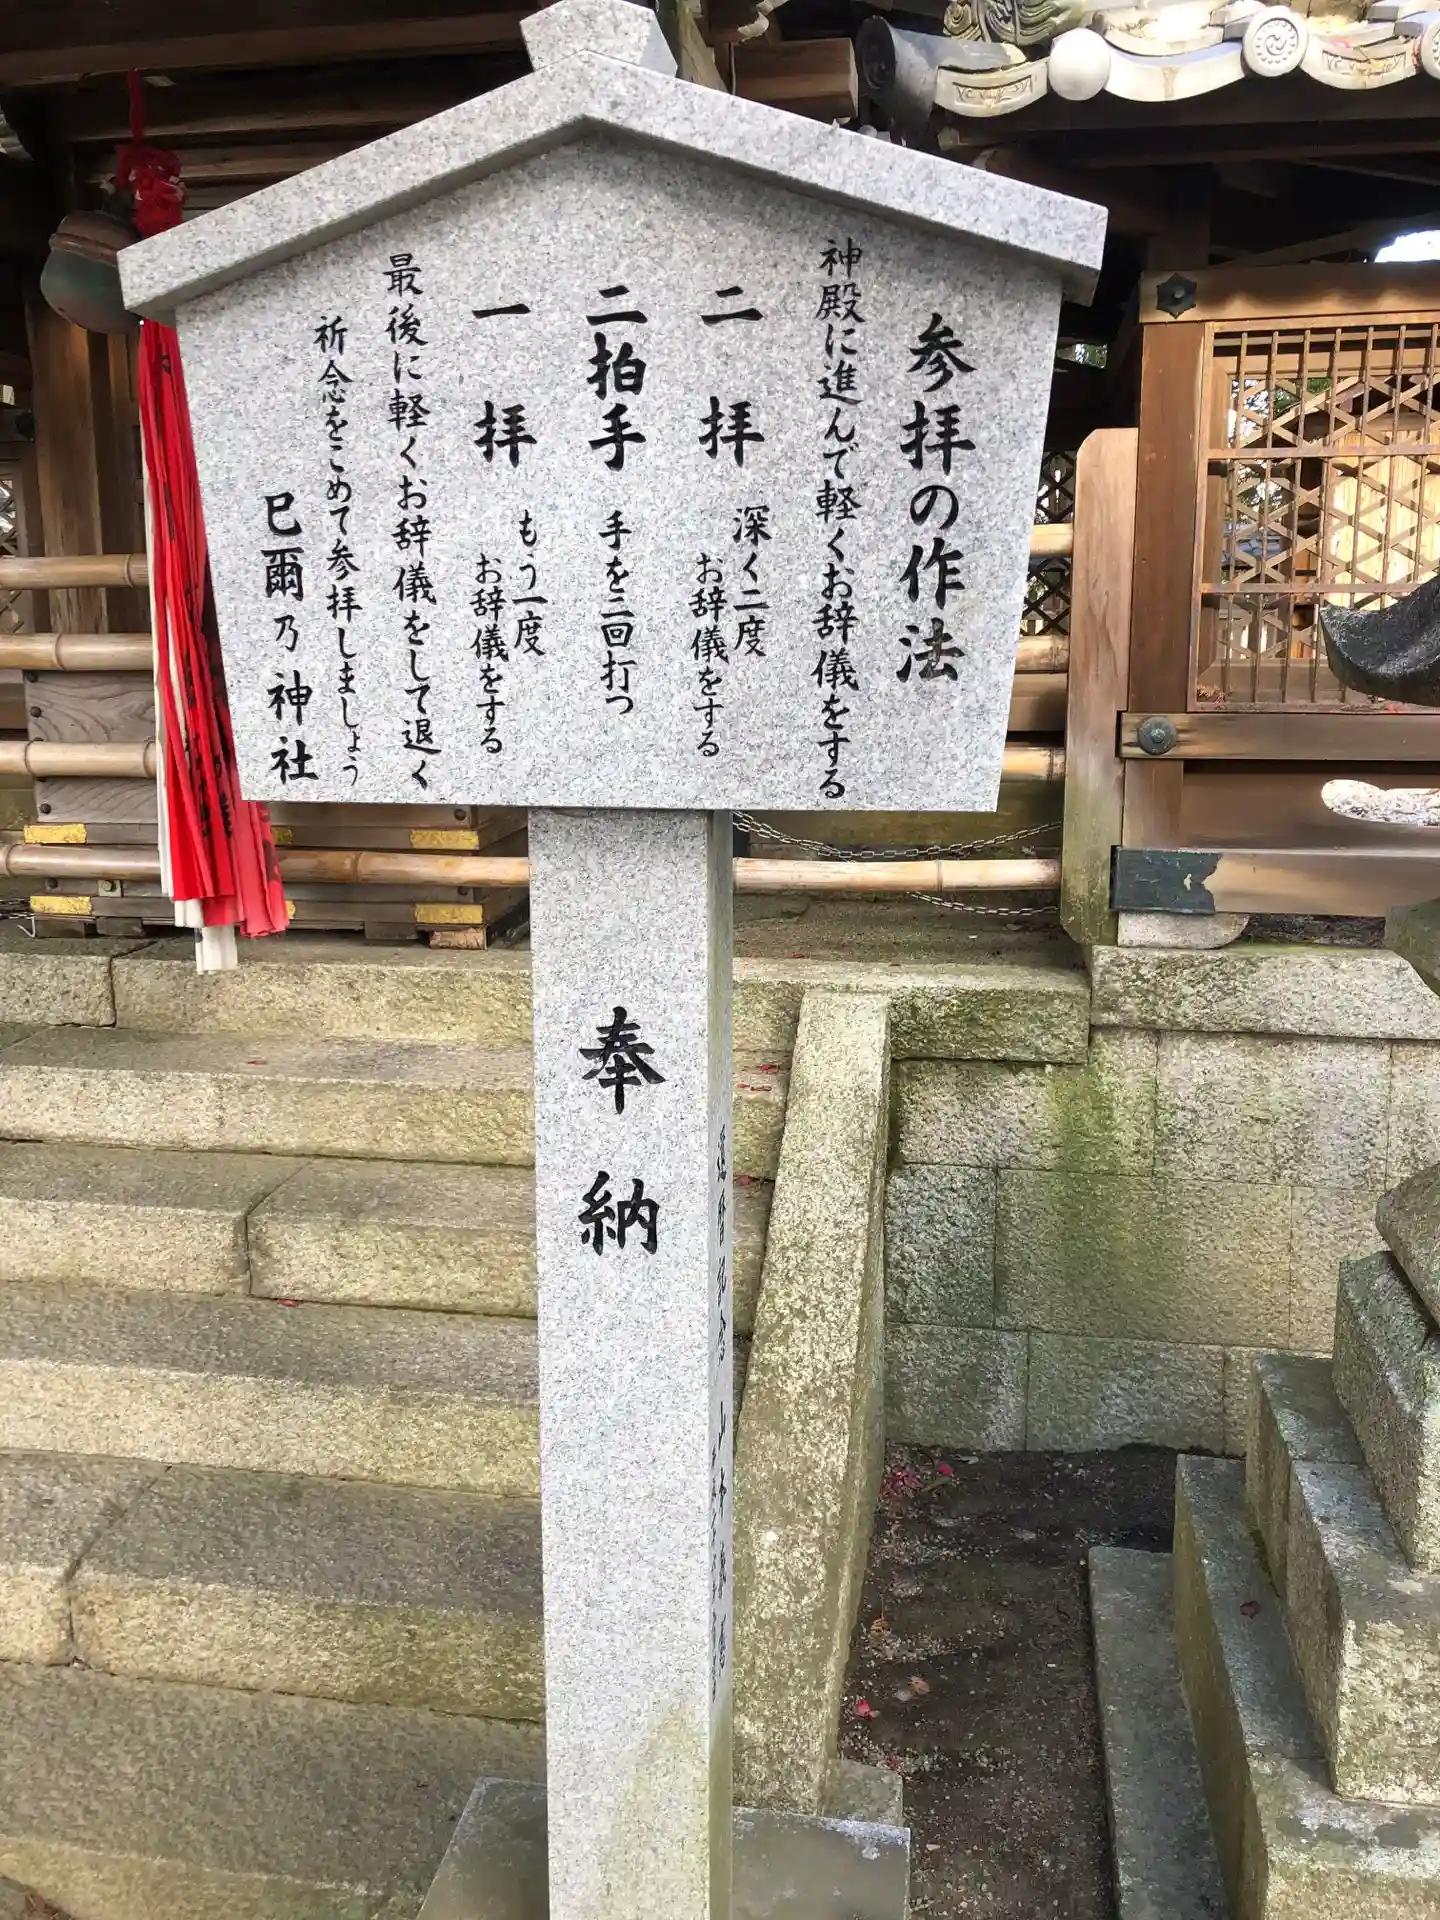 参拝の作法
神殿に進んで軽くお辞儀をする
二拝 深く二度
お辞儀をする
二拍手 手を二回打つ
一拝 もう一度
お辞儀をする
最後に軽くお辞儀をして退く
祈念をこめて参拝しましょう
巳爾乃神社
奉納